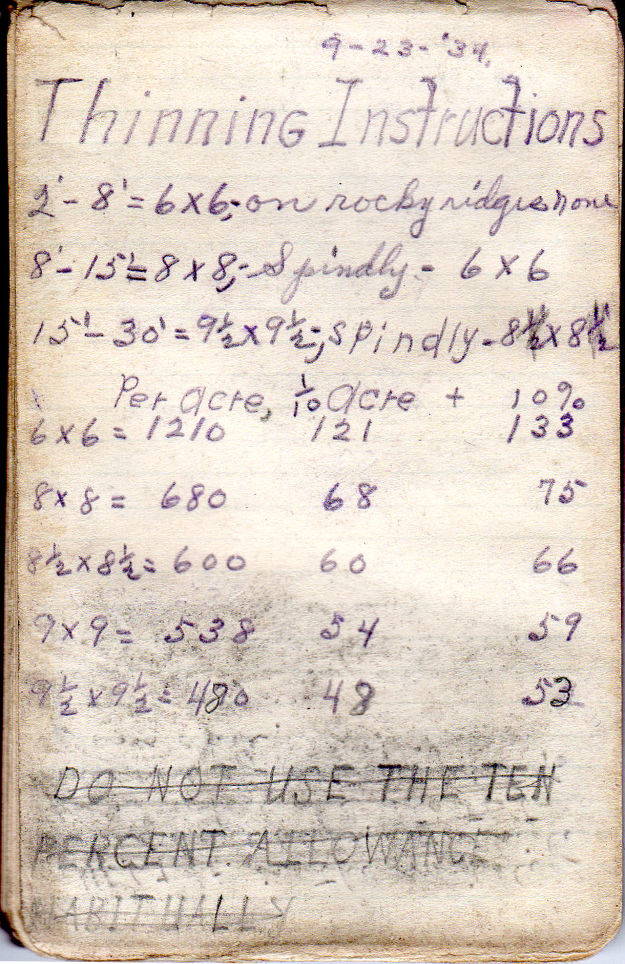 9-23-'39.
Thinning Instructions
2'-8'=6x6;-on rocky ridges none
8'-15'=8x8;-Spindly- 6x6
15'-30'=9½x9½;-spindly-8½x8½
Per acre, 1/10 acre + 10%
6x6= 1210 121 133
8x8= 680 68 75
8½x8½= 600 60 66
9x9= 538 54 59
9½x9½= 480 48 53
DO NOT USE THE TEN
PERCENT ALLOWANCE
HABITUALLY